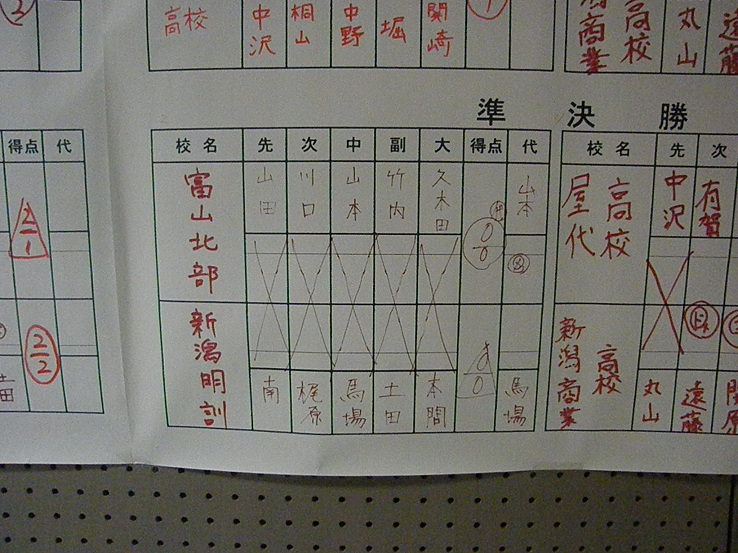 高校
中沢
桐山
中野
堀
関崎
商業
高校
丸山
遠藤
準決勝
得点 代
2/1
2/2
校名 先 次 中 副 大 得点 代
富山北部
山田
川口
山本
竹内
久木田
0/0
山本
新潟明訓
南
梶原
馬場
土田
本間
0
馬場
校名 先 次
屋代高校
中沢
有賀
新潟商業高校
丸山
遠藤
関原